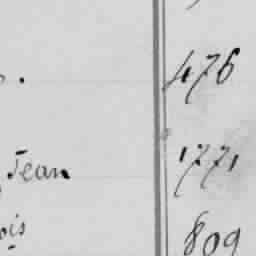 476
Jean 1771
ois 809